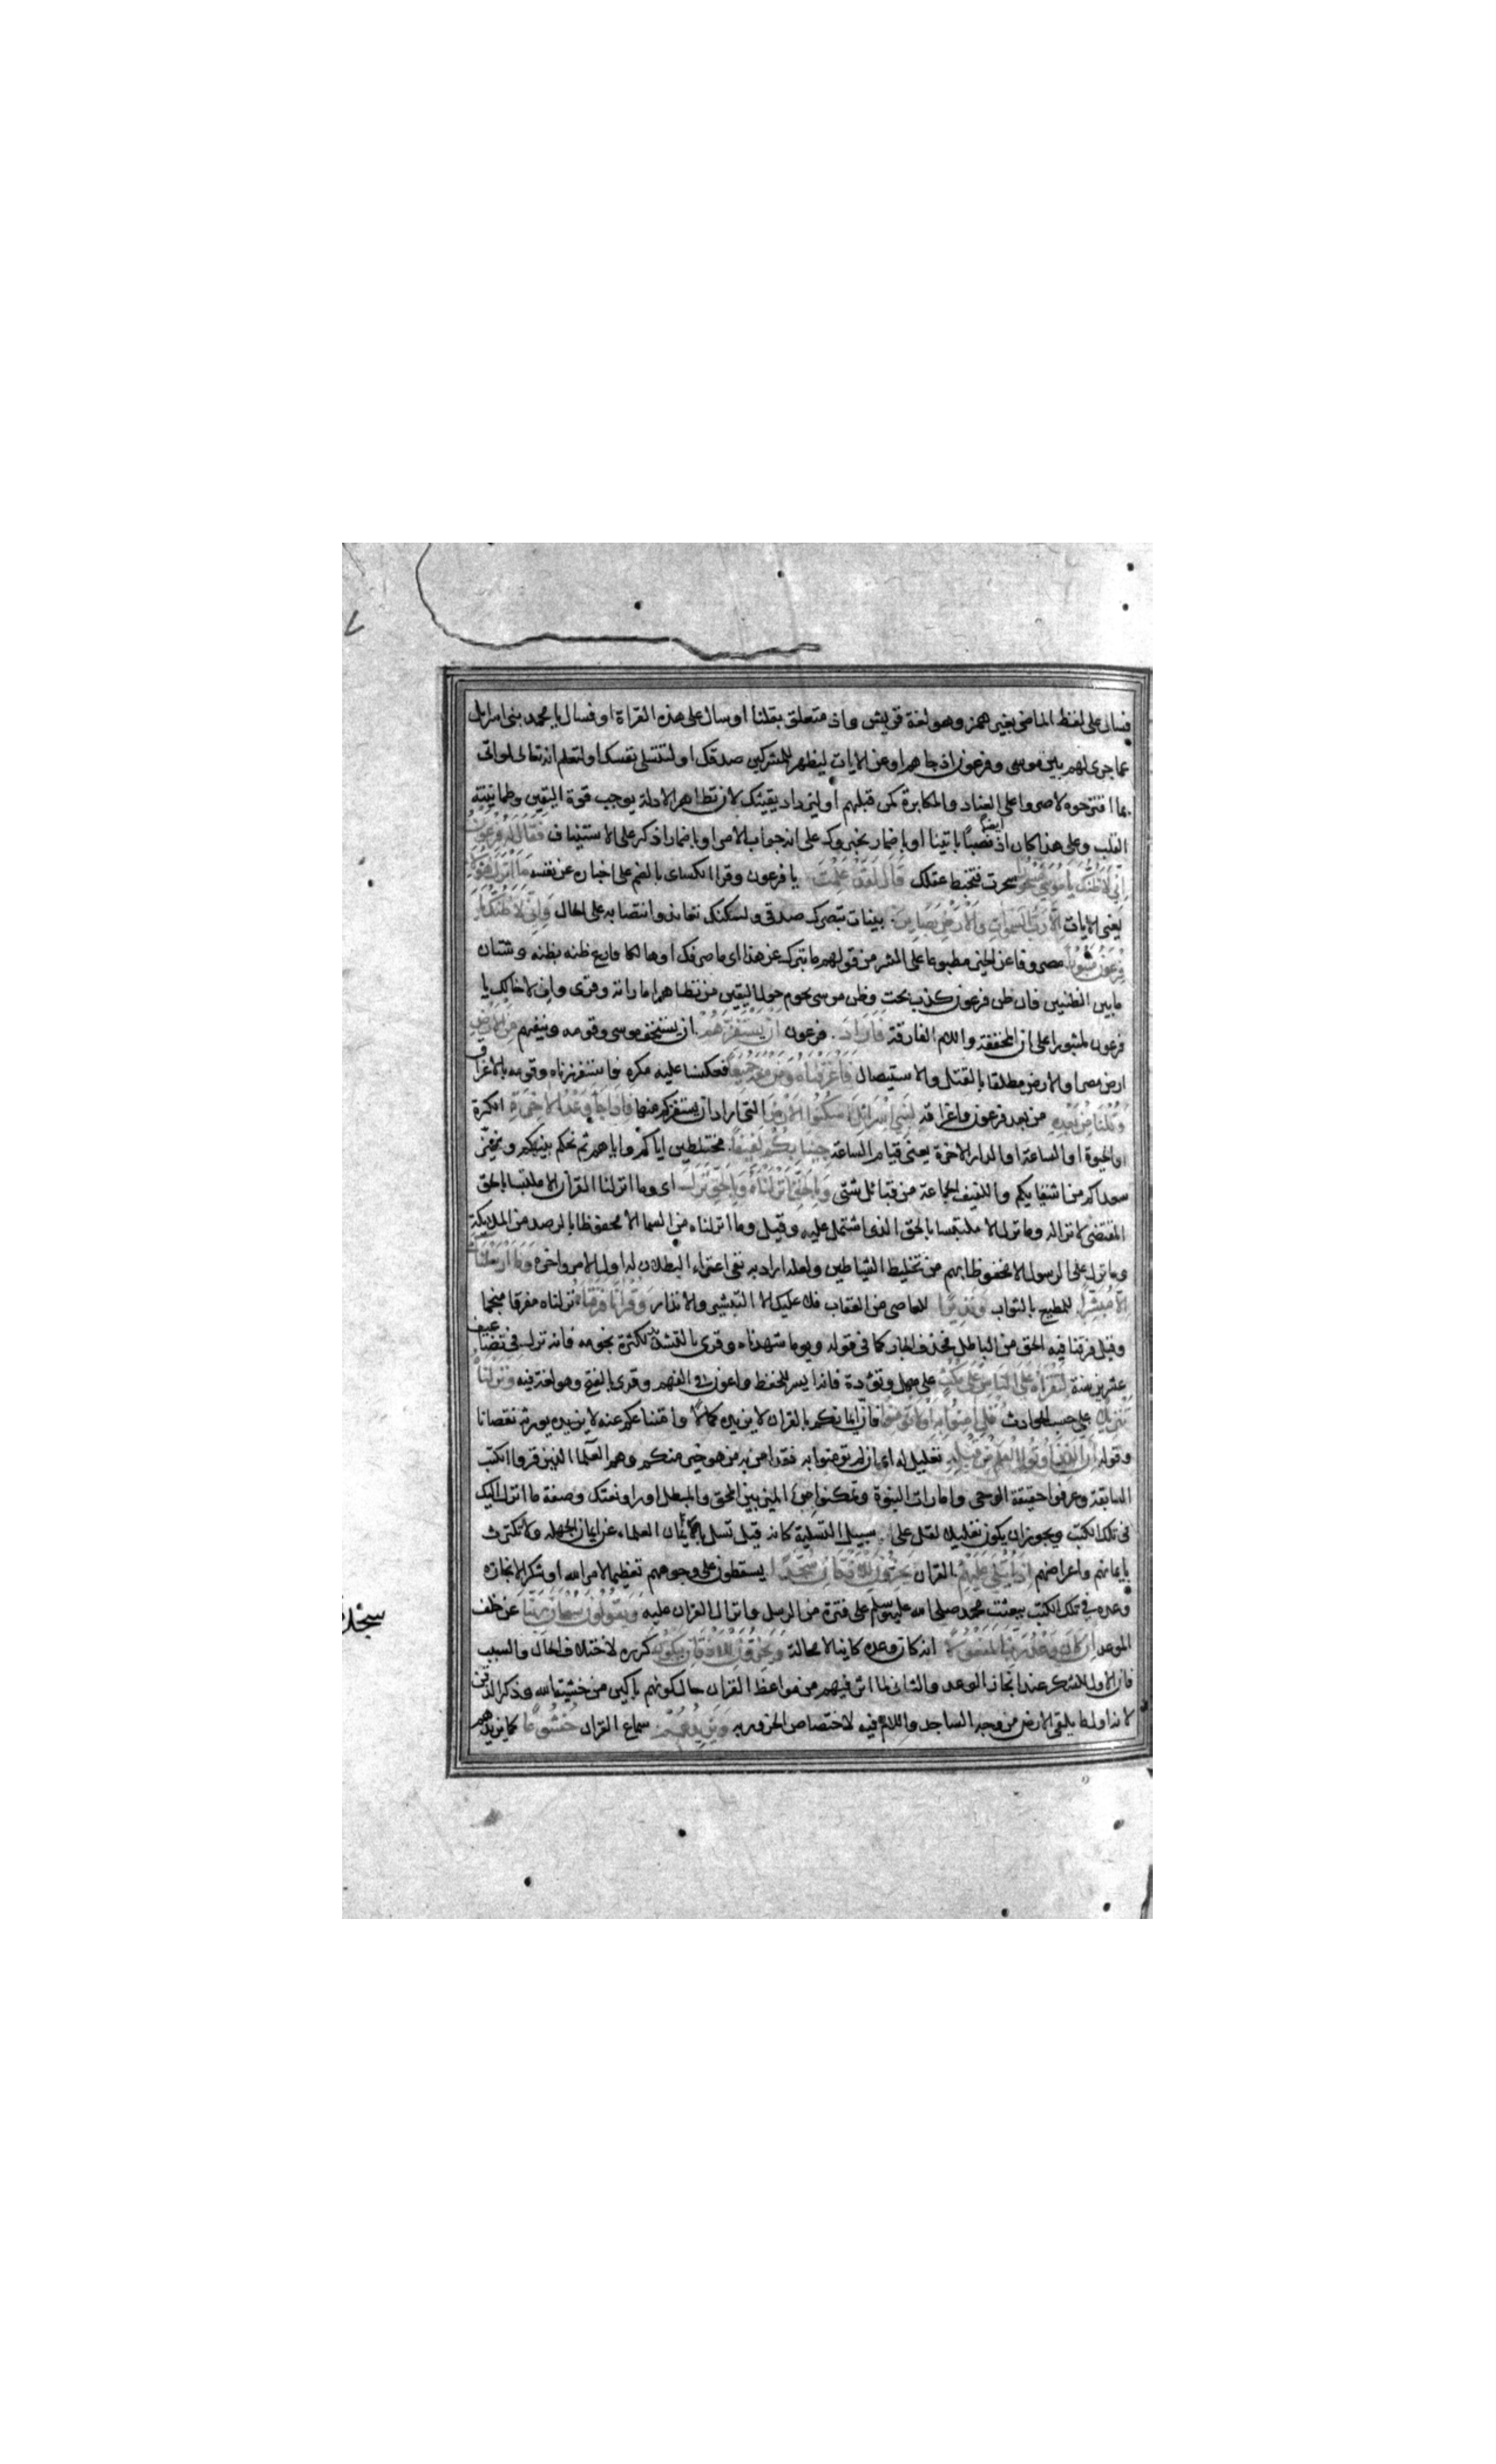 فسال على لفظ الماضى بغير همز وهو لغة قريش واذ متعلق بقلنا او سال على هذه القراة او فسال يا محمد بنى اسرايل
عما جرى لهم بين موسى وفرعون اذ جاهم او عن الايات ليظهر للمشركين صدقك او لتتسلى نفسك او لتعلم انه تعالى لو اتى
بما اقترحوه لاصروا على العناد والمكابرة كمن قبلهم او ليزداد يقينك لان تظاهر الادلة يوجب قوة اليقين وطمانينة
القلب وعلى هذا كان اذ نصبا باتينا او باضمار يخبروك على انه جواب الامر او باضمار اذكر على الاستيناف فَقَالَ لَهُ فِرْعَوْنُ
اِنِّى لَاَظُنُّكَ يَا مُوسَى مَسْحُورًا سحرت فتخبط عقلك قَالَ لَقَدْ عَلِمْتَ يا فرعون وقرا الكساى بالضم على اخباره عن نفسه مَا اَنْزَلَ هٰؤُلَاءِ
يعنى الايات اِلَّا رَبُّ السَّمٰوَاتِ وَالْاَرْضِ بَصَائِرَ بينات تبصرك صدقى ولكنك تعاند وانتصابه على الحال وَاِنِّى لَاَظُنُّكَ يَا
فِرْعَوْنُ مَثْبُورًا مصروفا عن الخير مطبوعا على الشر من قولهم ما ثبرك عن هذا اى ما صرفك او هالكا قارع ظنه بظنه وشتان
ما بين الظنين فان ظن فرعون كذب بحت وظن موسى يحوم حول اليقين من تظاهر اماراته وقرى وان اخالك يا
فرعون لمثبورا على ان المخففة واللام الفارقة فَاَرَادَ فرعون اَنْ يَسْتَفِزَّهُمْ ان يستخف موسى وقومه وينفيهم مِنَ الْاَرْضِ
ارض مصر او الارض مطلقا بالقتل والاستيصال فَاَغْرَقْنَاهُ وَمَنْ مَعَهُ جَمِيعًا فعكسنا عليه مكره فاستفززناه وقومه بالاغراق
وَقُلْنَا مِنْ بَعْدِهِ من بعد فرعون واغراقه لِبَنِى اِسْرَائِلَ اسْكُنُوا الْاَرْضَ التى اراد ان يستفزكم منها فَاِذَا جَاءَ وَعْدُ الْاٰخِرَةِ الكرة
او الحيوة او الساعة او الدار الاخرة يعنى قيام الساعة جِئْنَا بِكُمْ لَفِيفًا مختلطين اياكم واياهم ثم نحكم بينكم ونميز
سعداكم من اشقيايكم واللفيف الجماعة من قبائل شتى وَبِالْحَقِّ اَنْزَلْنَاهُ وَبِالْحَقِّ نَزَلَ اى وما انزلنا القرآن الا ملتبسا بالحق
المقتضى لانزاله وما نزل الا ملتبسا بالحق الذى اشتمل عليه وقيل وما انزلناه من السما الا محفوظا بالرصد من الملايكة
وما نزل على الرسول الا محفوظا بهم من تخليط الشياطين ولعله اراد به نفى اعتراء البطلان له اول الامر واخره وَمَا اَرْسَلْنَاكَ
اِلَّا مُبَشِّرًا للمطيع بالثواب وَنَذِيرًا للعاصى من العقاب فلا عليك الا التبشير والانذار وَقُرْاٰنًا فَرَقْنَاهُ نزلناه مفرقا منجما
وقيل فرقنا فيه الحق من الباطل فحذف الجار كما فى قوله ويوما شهدناه وقرى بالتشديد لكثرة نجومه فانه نزل فى تضاعيف
عشرين سنة لِتَقْرَاَهُ عَلَى النَّاسِ عَلَى مُكْثٍ على مهل وتؤدة فانه ايسر للحفظ واعون فى الفهم وقرى بالفتح وهو لغة فيه وَنَزَّلْنَاهُ
تَنْزِيلًا على حسب الحوادث قُلْ اٰمِنُوا بِهِ اَوْ لَا تُؤْمِنُوا فان ايمانكم بالقران لا يزيده كمالا وامتناعكم عنه لا يزيده يورثه نقصانا
وقوله اِنَّ الَّذِينَ اُوتُوا الْعِلْمَ مِنْ قَبْلِهِ تعليل له اى ان لم تومنوا به فقد امن به من هو خير منكم وهم العلما الذين قروا الكتب
السابقة وعرفوا حقيقة الوحى وامارات النبوة وتمكنوا من الميز بين المحق والمبطل او راوا نعتك وصفة ما انزل اليك
فى تلك الكتب ويجوز ان يكون تعليلا لقل على سبيل التسلية كانه قيل تسل بايمان العلماء عن ايمان الجهله ولا تكترث
بايمانهم واعراضهم اِذَا يُتْلَى عَلَيْهِمْ القران يَخِرُّونَ لِلْاَذْقَانِ سُجَّدًا يسقطون على وجوههم تعظيما لامر الله او شكرا لانجازه
وعده فى تلك الكتب ببعثت محمد صلى الله عليه وسلم على فترة من الرسل وانزال القران عليه وَيَقُولُونَ سُبْحَانَ رَبِّنَا عن خلف
الموعد اِنْ كَانَ وَعْدُ رَبِّنَا لَمَفْعُولًا انه كان وعده كاينا لا محالة وَيَخِرُّونَ لِلْاَذْقَانِ يَبْكُونَ كرره لاختلاف الحال والسبب
فان الاول للشكر عند انجاز الوعد والثانى لما اثر فيهم من مواعظ القران حال كونهم باكين من خشية الله وذكر الذقن
لانه اول ما يلقى الارض من وجه الساجد واللام فيه لاختصاص الخرور به وَيَزِيدُهُمْ سماع القران خُشُوعًا كما يزيدهم